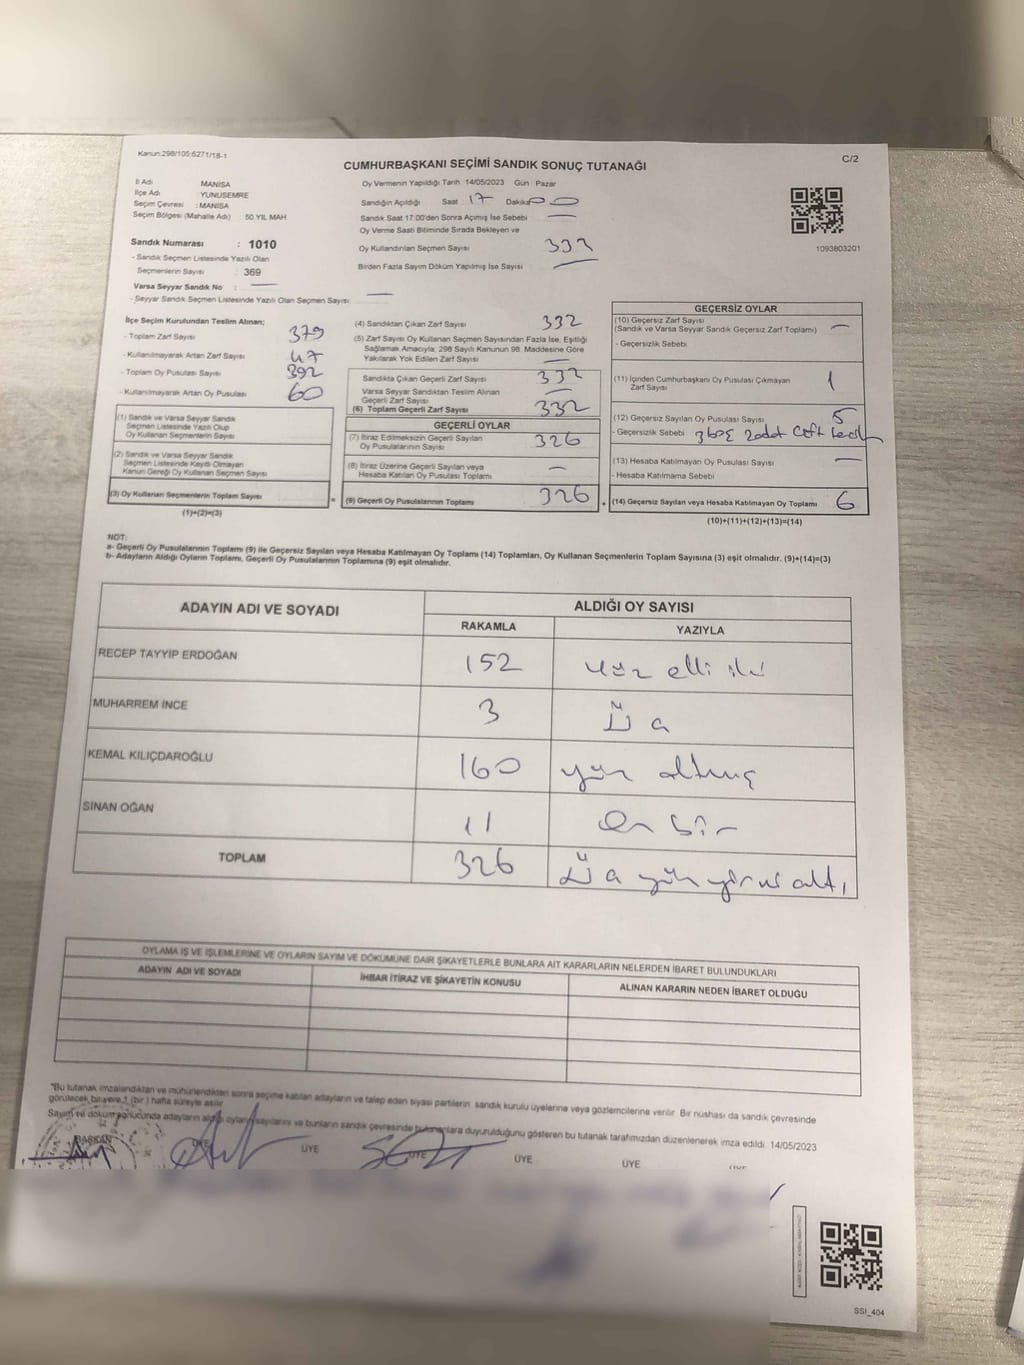 Kanun:298/105;6271/18-1
C/2
CUMHURBAŞKANI SEÇİMİ SANDIK SONUÇ TUTANAĞI
İl Adı MANİSA
İlçe Adı YUNUSEMRE
Seçim Çevresi : MANİSA
Seçim Bölgesi (Mahalle Adı) : 50.YIL MAH.
Sandık Numarası : 1010
- Sandık Seçmen Listesinde Yazılı Olan
Seçmenlerin Sayısı : 369
Varsa Seyyar Sandık No : —
- Seyyar Sandık Seçmen Listesinde Yazılı Olan Seçmen Sayısı: —
Oy Vermenin Yapıldığı Tarih :14/05/2023 Gün : Pazar
Sandığın Açıldığı Saat 17 Dakika 00
Sandık Saat 17:00'den Sonra Açımış İse Sebebi —
Oy Verme Saati Bitiminde Sırada Bekleyen ve
Oy Kullandırılan Seçmen Sayısı 332
Birden Fazla Sayım Döküm Yapılmış İse Sayısı —
1093803201
İlçe Seçim Kurulundan Teslim Alınan;
- Toplam Zarf Sayısı 379
- Kullanılmayarak Artan Zarf Sayısı 47
- Toplam Oy Pusulası Sayısı 392
- Kullanılmayarak Artan Oy Pusulası 60
(1) Sandık ve Varsa Seyyar Sandık
Seçmen Listesinde Yazılı Olup
Oy Kullanan Seçmenlerin Sayısı
(2) Sandık ve Varsa Seyyar Sandık
Seçmen Listesinde Kayıtlı Olmayan
Kanun Gereği Oy Kullanan Seçmen Sayısı
(3) Oy Kullanan Seçmenlerin Toplam Sayısı
(1)+(2)=(3)
(4) Sandıktan Çıkan Zarf Sayısı 332
(5) Zarf Sayısı Oy Kullanan Seçmen Sayısından Fazla İse, Eşitliği
Sağlamak Amacıyla; 298 Sayılı Kanunun 98. Maddesine Göre
Yakılarak Yok Edilen Zarf Sayısı —
Sandıkta Çıkan Geçerli Zarf Sayısı 332
Varsa Seyyar Sandıktan Teslim Alınan
Geçerli Zarf Sayısı —
(6) Toplam Geçerli Zarf Sayısı 332
GEÇERLİ OYLAR
(7) İtiraz Edilmeksizin Geçerli Sayılan
Oy Pusulalarının Sayısı 326
(8) İtiraz Üzerine Geçerli Sayılan veya
Hesaba Katılan Oy Pusulası Toplamı —
(9) Geçerli Oy Pusulalarının Toplamı 326
GEÇERSİZ OYLAR
(10) Geçersiz Zarf Sayısı
(Sandık ve Varsa Seyyar Sandık Geçersiz Zarf Toplamı) —
- Geçersizlik Sebebi
(11) İçinden Cumhurbaşkanı Oy Pusulası Çıkmayan
Zarf Sayısı 1
(12) Geçersiz Sayılan Oy Pusulası Sayısı 5
- Geçersizlik Sebebi 3 boş 2 adet Çift
(13) Hesaba Katılmayan Oy Pusulası Sayısı —
- Hesaba Katılmama Sebebi
(14) Geçersiz Sayılan veya Hesaba Katılmayan Oy Toplamı 6
(10)+(11)+(12)+(13)=(14)
NOT:
a- Geçerli Oy Pusulalarının Toplamı (9) ile Geçersiz Sayılan veya Hesaba Katılmayan Oy Toplamı (14) Toplamları, Oy Kullanan Seçmenlerin Toplam Sayısına (3) eşit olmalıdır. (9)+(14)=(3)
b- Adayların Aldığı Oyların Toplamı, Geçerli Oy Pusulalarının Toplamına (9) eşit olmalıdır.
ADAYIN ADI VE SOYADI ALDIĞI OY SAYISI
RAKAMLA YAZIYLA
RECEP TAYYİP ERDOĞAN 152 yüz elli iki
MUHARREM İNCE 3 Üç
KEMAL KILIÇDAROĞLU 160 yüz altmış
SİNAN OĞAN 11 on bir
TOPLAM 326 Üç yüz yirmi altı
OYLAMA İŞ VE İŞLEMLERİNE VE OYLARIN SAYIM VE DÖKÜMÜNE DAİR ŞİKAYETLERLE BUNLARA AİT KARARLARIN NELERDEN İBARET BULUNDUKLARI
ADAYIN ADI VE SOYADI İHBAR İTİRAZ VE ŞİKAYETİN KONUSU ALINAN KARARIN NEDEN İBARET OLDUĞU
*Bu tutanak imzalandıktan ve mühürlendikten sonra seçime katılan adayların ve talep eden siyasi partilerin sandık kurulu üyelerine veya gözlemcilerine verilir. Bir nüshası da sandık çevresinde
görülecek bir yere 1 (bir ) hafta süreyle asılır.
Sayım ve döküm sonucunda adayların aldığı oyların sayılarını ve bunların sandık çevresinde bulunanlara duyurulduğunu gösteren bu tutanak tarafımızdan düzenlenerek imza edildi. 14/05/2023
BAŞKAN ÜYE ÜYE ÜYE ÜYE ÜYE
SSI_404